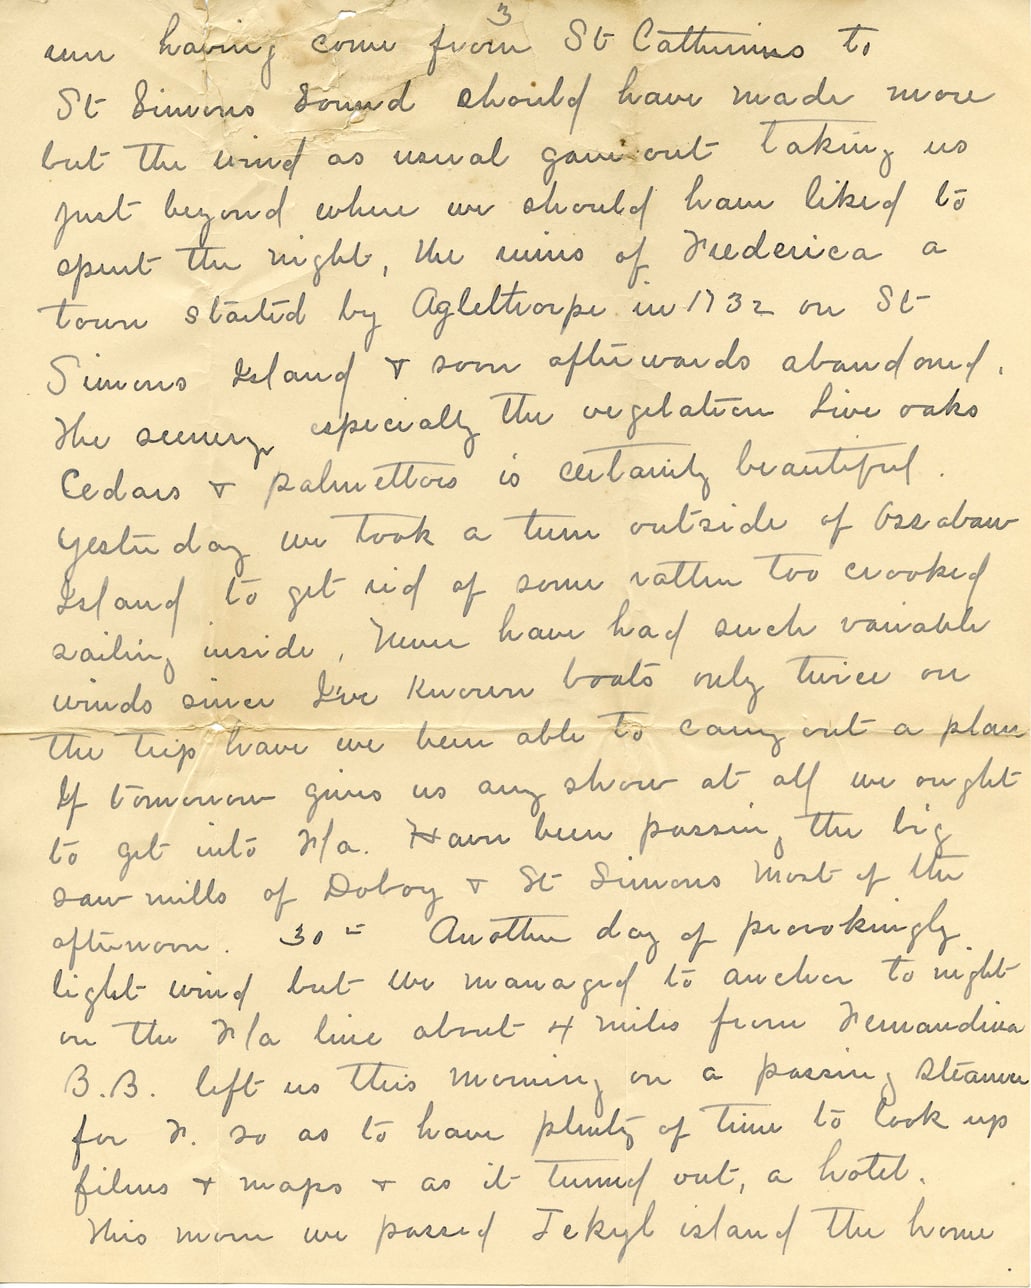 3
run having come from St Catherines to
St Simons Sound should have made more
but the wind as usual gave out taking us
just beyond where we should have liked to
spent the night, the ruins of Frederica a
town started by Aglethorpe in 1732 on St
Simons Island & soon afterwards abandoned.
The scenery especially the vegetation live oaks
Cedars & palmettoes is certainly beautiful.
Yesterday we took a turn outside of Ossabaw
Island to get rid of some rather too crooked
sailing inside. Never have had such variable
winds since I've known boats only twice on
the trip have we been able to carry out a plan
If tomorrow gives us any show at all we ought
to get into Fla. Have been passing the big
saw mills of Doboy & St Simons most of the
afternoon. 30 = Another day of provokingly
light wind but we managed to anchor to night
on the Fla line about 4 miles from Fernandina
B.B. left us this morning on a passing steamer
for F. so as to have plenty of time to look up
films & maps & as it turned out, a hotel.
This morn we passed Jekyl island the home